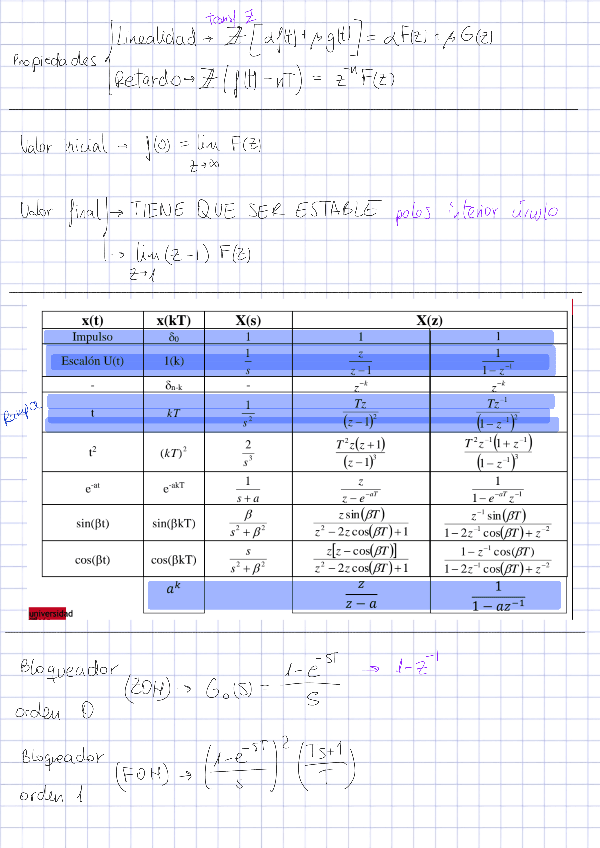 transf Z
Propiedades
Linealidad → Z [αf(t) + βg(t)] = αF(z) + βG(z)
Retardo → Z (f(t - nT) = z⁻ⁿ F(z)
Valor inicial → f(0) = lim F(z)
z→∞
Valor final → TIENE QUE SER ESTABLE polos interior círculo
→ lim (z-1) F(z)
z→1
x(t) x(kT) X(s) X(z)
Impulso δ₀ 1 1 1
Escalón U(t) 1(k) 1/s z/(z-1) 1/(1-z⁻¹)
- δₙ₋ₖ - z⁻ᵏ z⁻ᵏ
Rampa
t kT 1/s² Tz/(z-1)² Tz⁻¹/(1-z⁻¹)²
t² (kT)² 2/s³ T²z(z+1)/(z-1)³ T²z⁻¹(1+z⁻¹)/(1-z⁻¹)³
e⁻ᵃᵗ e⁻ᵃᵏᵀ 1/(s+a) z/(z-e⁻ᵃᵀ) 1/(1-e⁻ᵃᵀz⁻¹)
sin(βt) sin(βkT) β/(s²+β²) z sin(βT)/(z²-2z cos(βT)+1) z⁻¹ sin(βT)/(1-2z⁻¹ cos(βT)+z⁻²)
cos(βt) cos(βkT) s/(s²+β²) z[z-cos(βT)]/(z²-2z cos(βT)+1) 1-z⁻¹ cos(βT)/(1-2z⁻¹ cos(βT)+z⁻²)
aᵏ z/(z-a) 1/(1-az⁻¹)
universidad
Bloqueador
orden 0
(ZOH) → G₀(s) = (1-e⁻ˢᵀ)/s → 1-z⁻¹
Bloqueador
orden 1
(FOH) → ((1-e⁻ˢᵀ)/s)² ((Ts+1)/T)